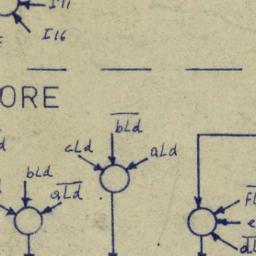 I11
I16
ORE
b̅L̅d̅
cLd
aLd
bLd
aL̅d̅